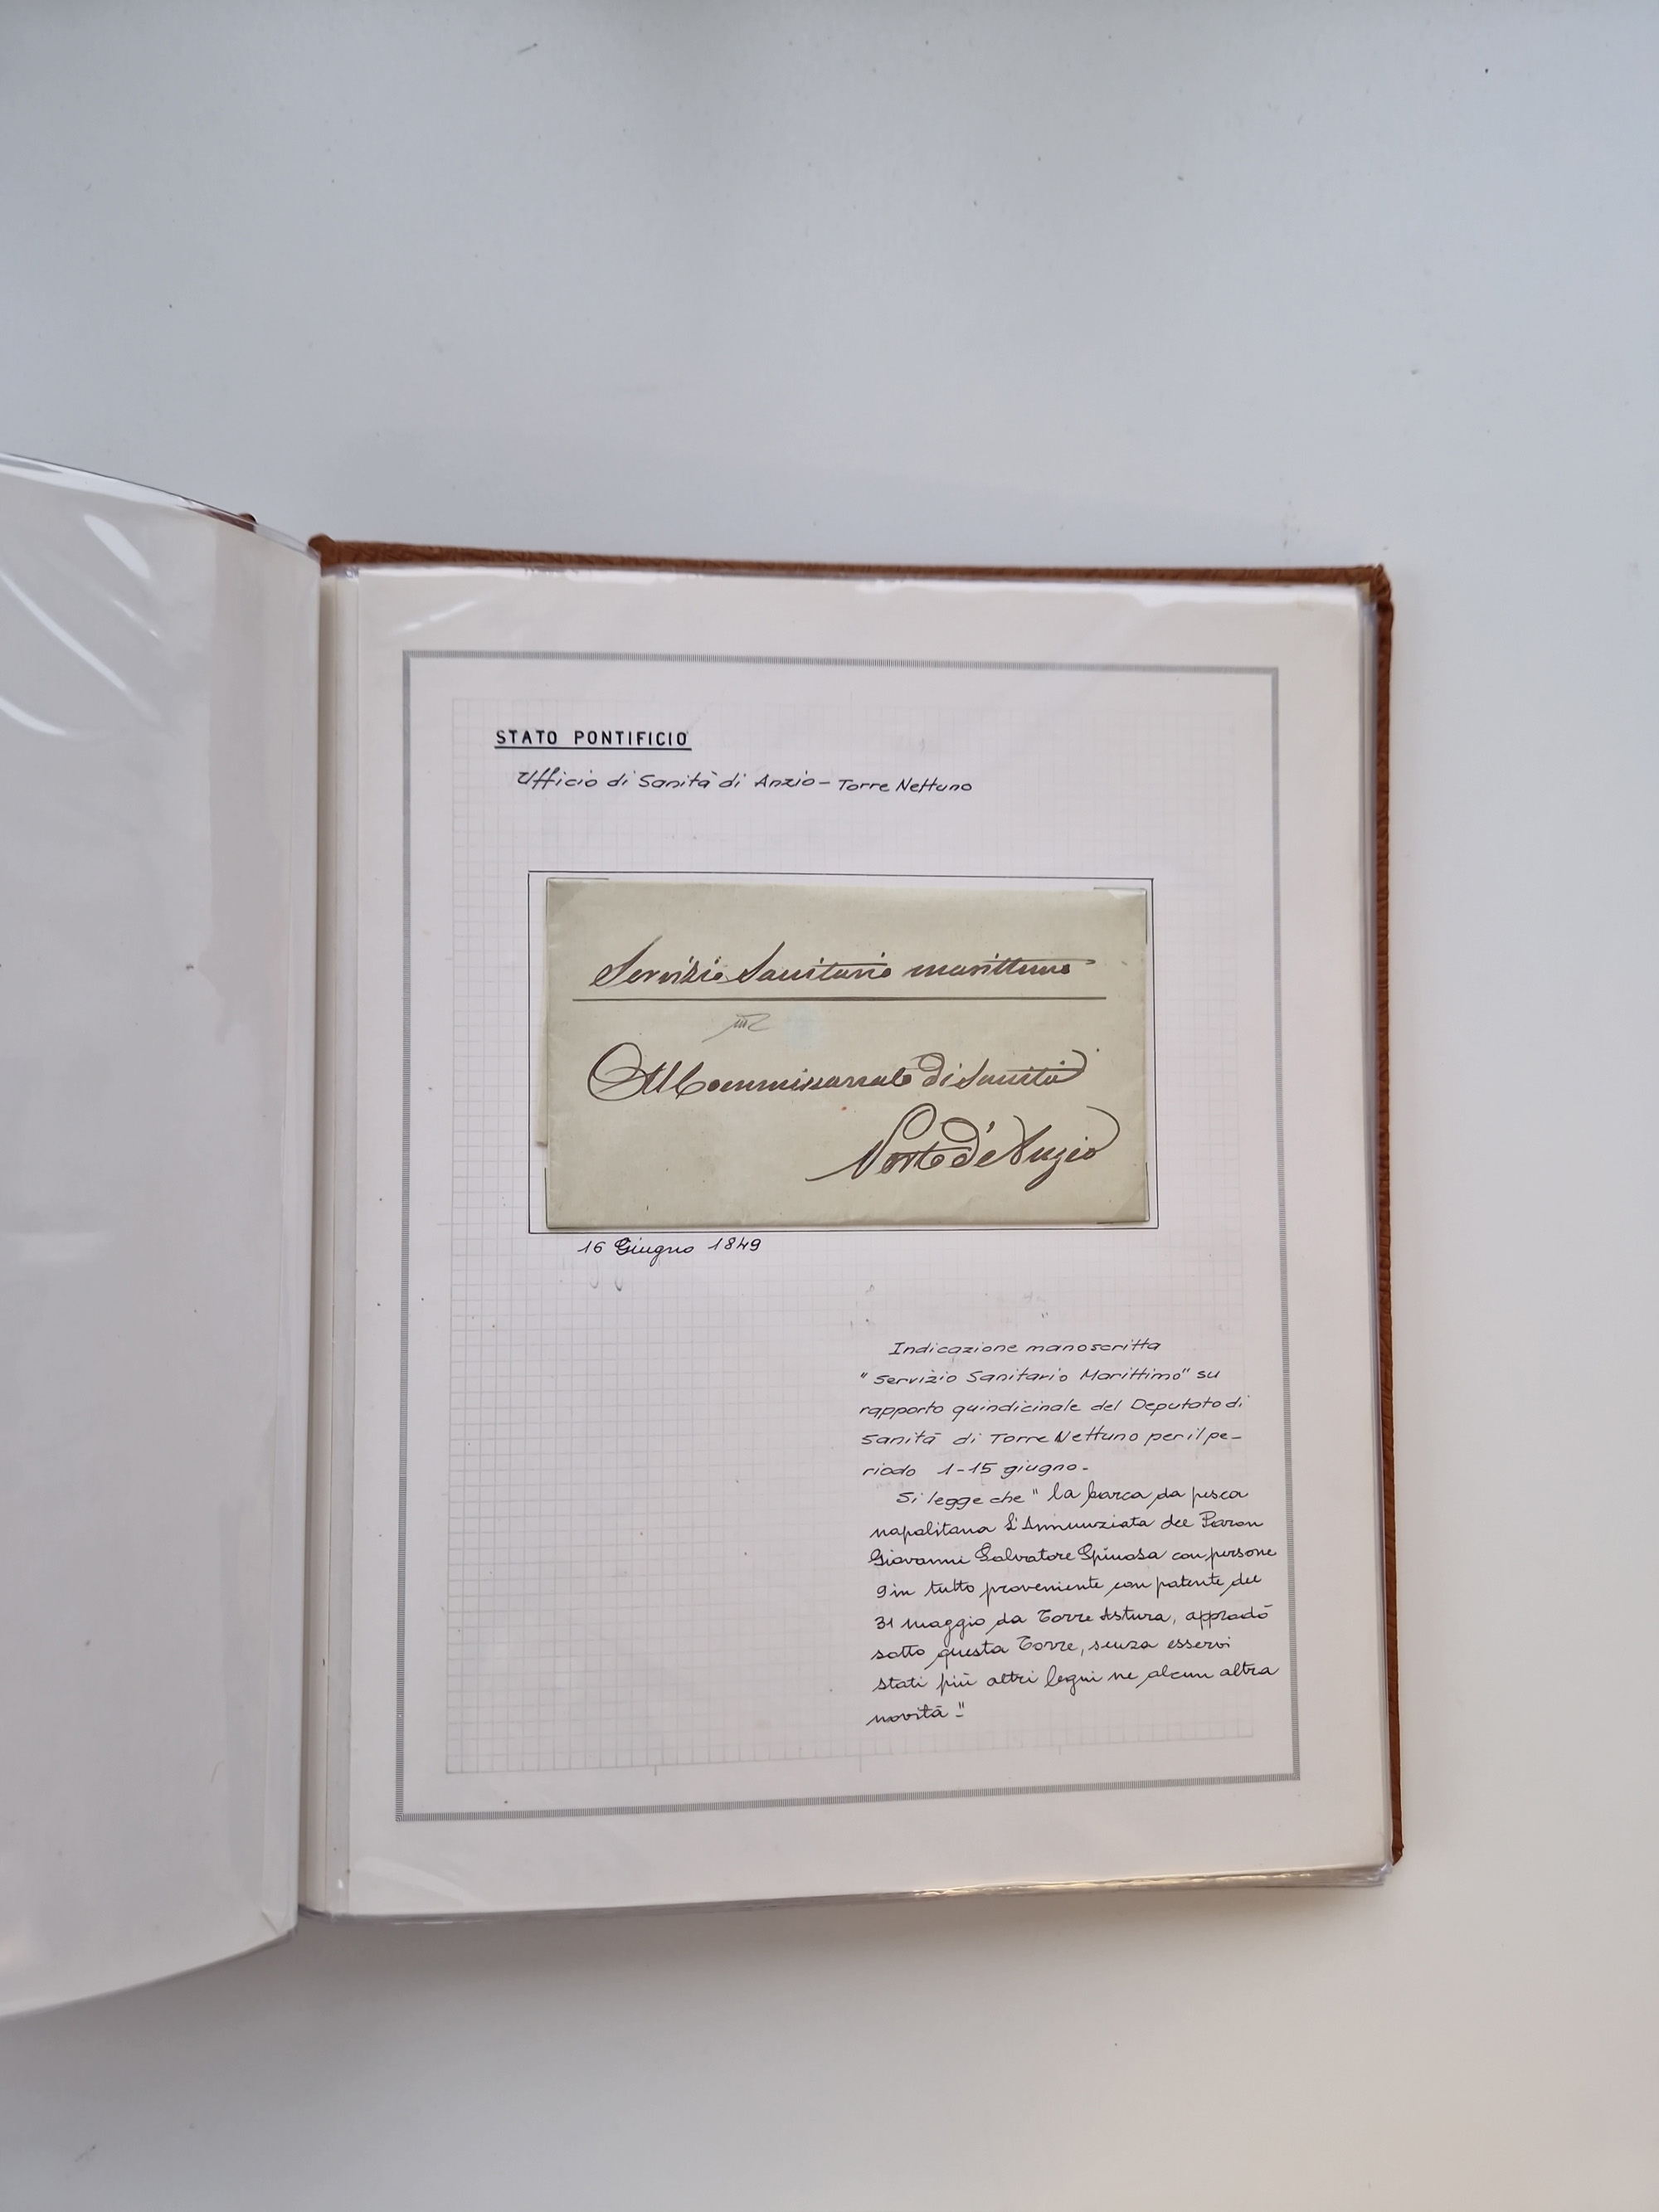 STATO PONTIFICIO
Ufficio di Sanità di Anzio - Torre Nettuno
Servizio Sanitario marittimo
Al Commissariato di Sanità
Porto d'Anzio
16 Giugno 1849
Indicazione manoscritta
"Servizio Sanitario Marittimo" su
rapporto quindicinale del Deputato di
Sanità di Torre Nettuno per il pe-
riodo 1-15 giugno.
Si legge che "la barca da pesca
napolitana L'Annunziata del Paron
Giovanni Salvatore Spinosa con persone
9 in tutto proveniente con patente del
31 maggio da Torre Astura, approdò
sotto questa Torre, senza esservi
stati più altri legni ne alcun altra
novità."